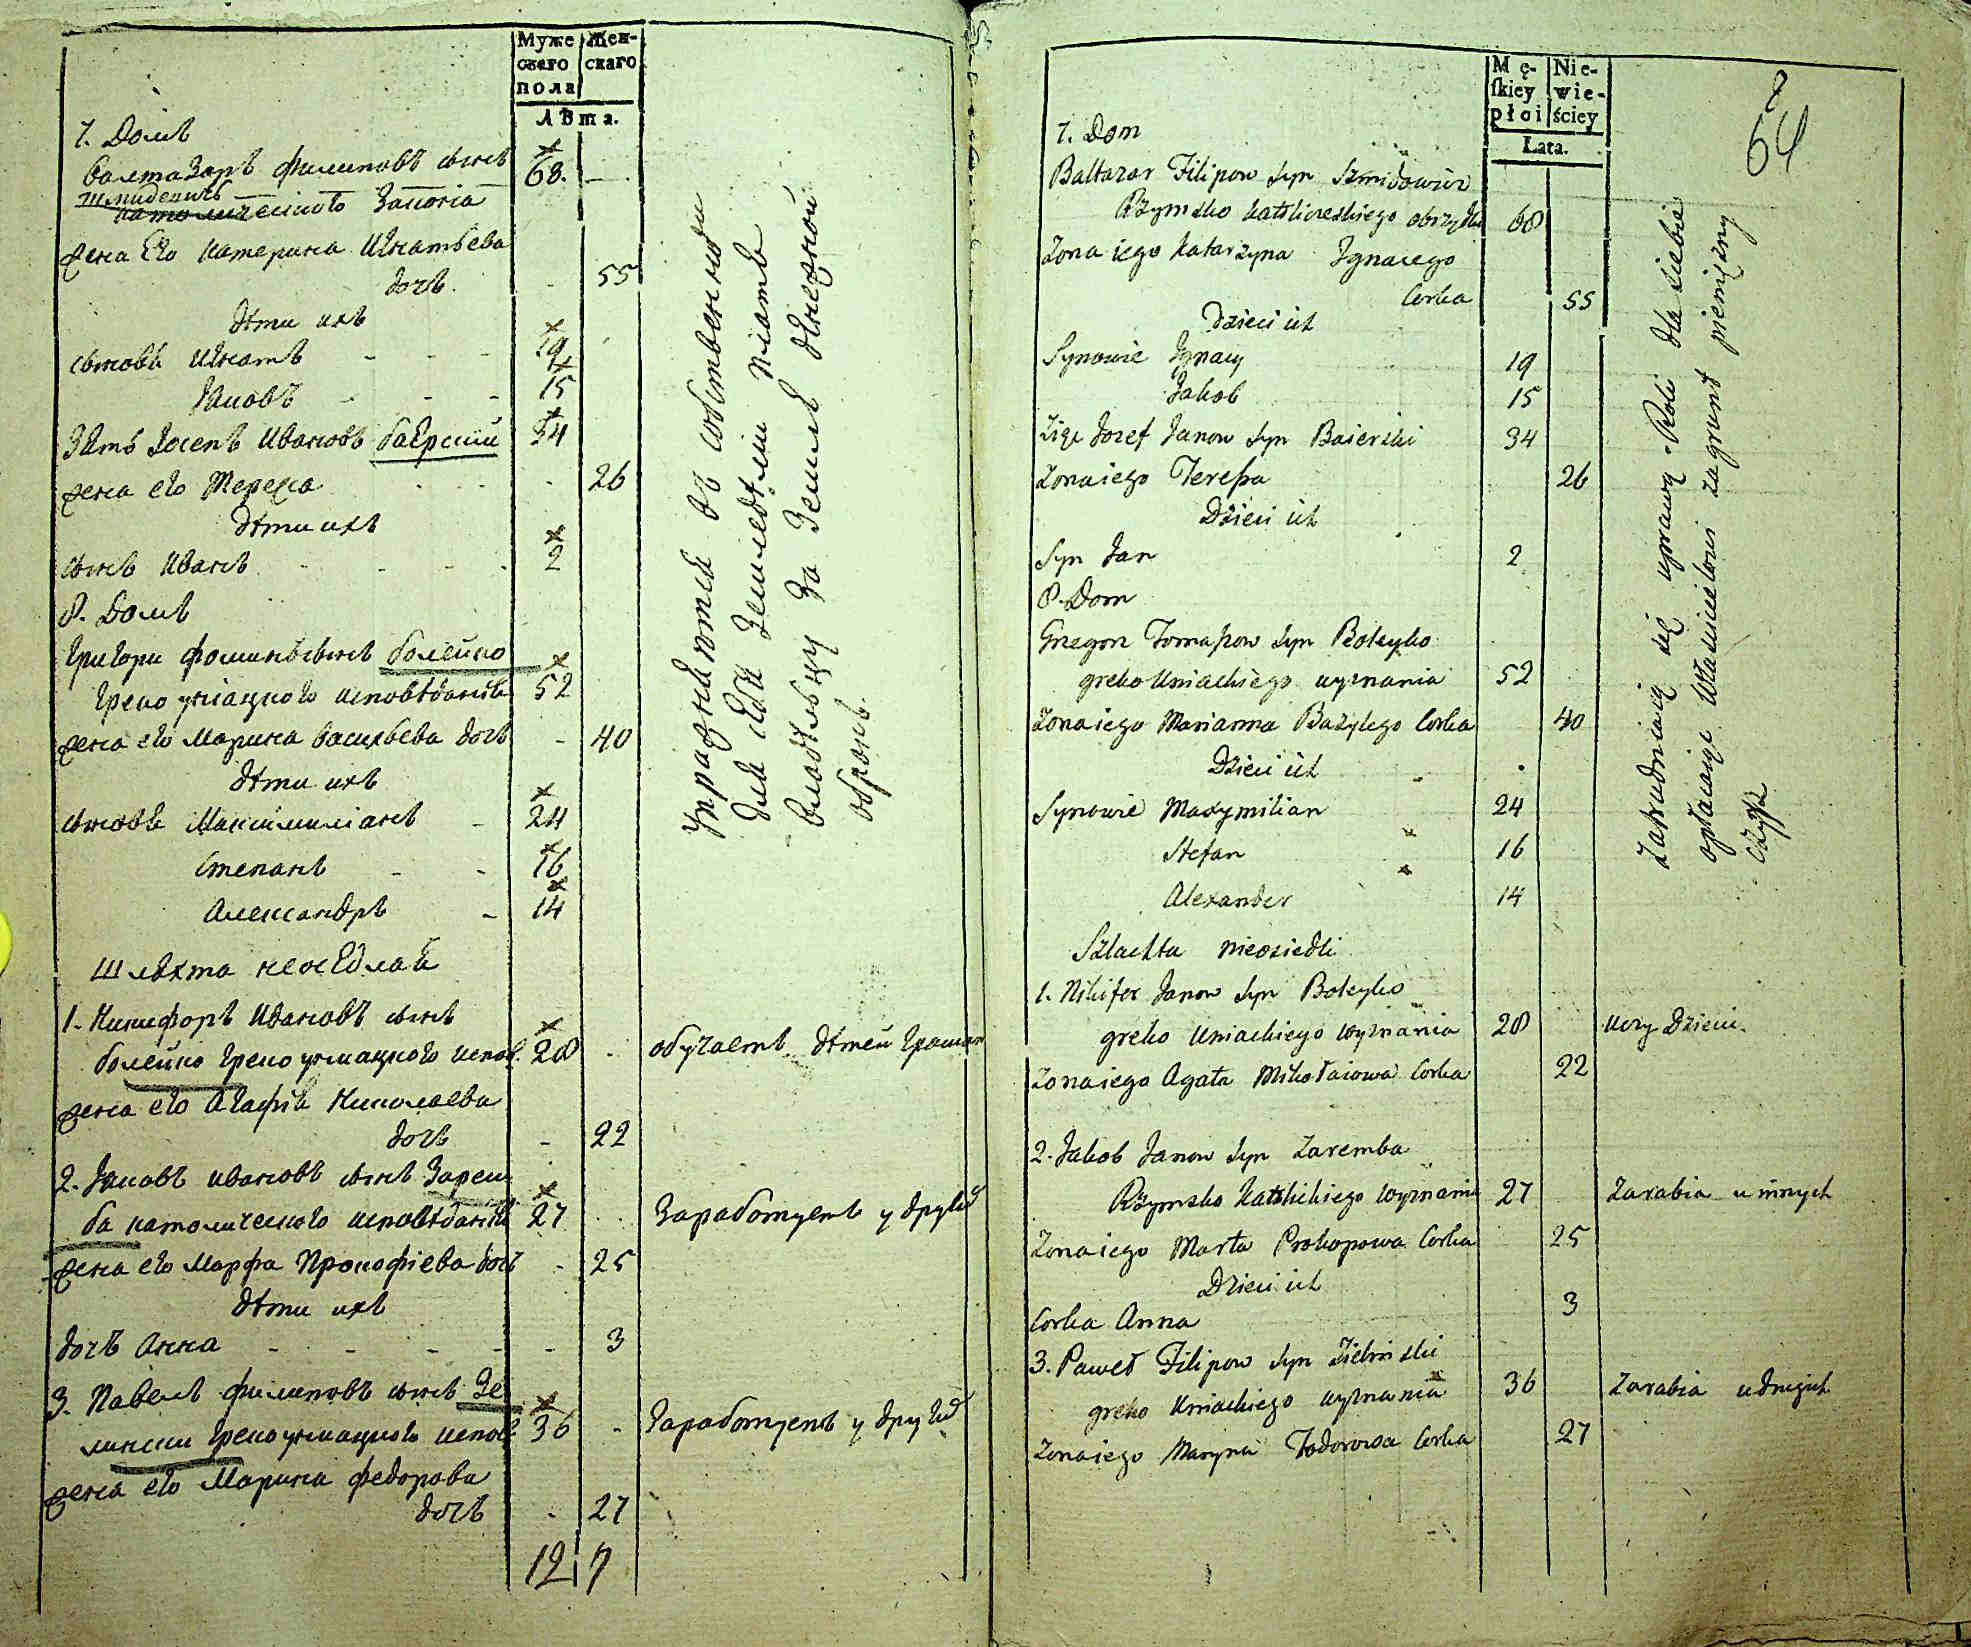 Муже
скаго
пола
Жен-
скаго
Лѣта.
7. Домъ
Балтазаръ Филиповъ сынъ 68.
Шмидевичъ
католическаго закона
жена его Катерина Игнатьева
дочь 55
дѣти ихъ
сыновья Игнатъ 19
Яковъ 15
Зять Іосепъ Ивановъ Баерскій 34
жена его Тереза 26
дѣти ихъ
сынъ Иванъ 2
8. Домъ
Григори Фоминъ сынъ Болейко
Греко униацкого исповѣданія 52
жена его Марина Васильева дочь 40
дѣти ихъ
сыновья Максимиліанъ 24
Степанъ 16
Александръ 14
Упражняются въ собственномъ
для себя земледѣліи платя
владѣльцу за землю денежной
оброкъ
Шляхта неоседлая
1. Никифоръ Ивановъ сынъ
Болейко Греко униацкого испов. 28 обучаетъ дѣтей грамот
жена его Агафія Николаева
дочь 22
2. Яковъ Ивановъ сынъ Зарем
ба католическаго исповѣданія 27 Зароботуетъ у другихъ
жена его Марфа Прокофіева дочь 25
дѣти ихъ
дочь Анна 3
3. Павелъ Филиповъ сынъ Зе
лински Греко униацкого испов. 36 Зароботуетъ у другихъ
жена его Марина Федорова
дочь 27
12 7
Mę-
skiey
płci
Nie-
wie-
ściey
Lata.
64
7. Dom
Baltazar Filipow syn Szmidowicz
Rzymsko katolickiego obrządku 68
Zona iego Katarzyna Ignacego
Corka 55
Dzieci ich
Synowie Ignacy 19
Jakob 15
Zięc Jozef Janow syn Baierski 34
Zona iego Teressa 26
Dzieci ich
Syn Jan 2
8. Dom
Gregor Tomaszow syn Boleyko
greko Uniackiego wyznania 52
Zona iego Marianna Bazylego Corka 40
Dzieci ich
Synowie Maxymilian 24
Stefan 16
Alexander 14
Zatrudniaią się uprawą Roli dla siebie
opłacaiąc Właścicielowi za grunt pieniężny
Czynsz
Szlachta nieosiedli
1. Nikifor Janow syn Boleyko
greko Uniackiego wyznania 28 Uczy Dzieci.
Zona iego Agata Mikołaiowa Corka 22
2. Jakob Janow syn Zaremba
Rzymsko Katolickiego wyznania 27 Zarabia u innych
Zona iego Marta Prokopowa Corka 25
Dzieci ich
Corka Anna 3
3. Paweł Filipow syn Zieliński
greko Uniackiego wyznania 36 Zarabia u drugich
Zona iego Maryna Todorowa Corka 27